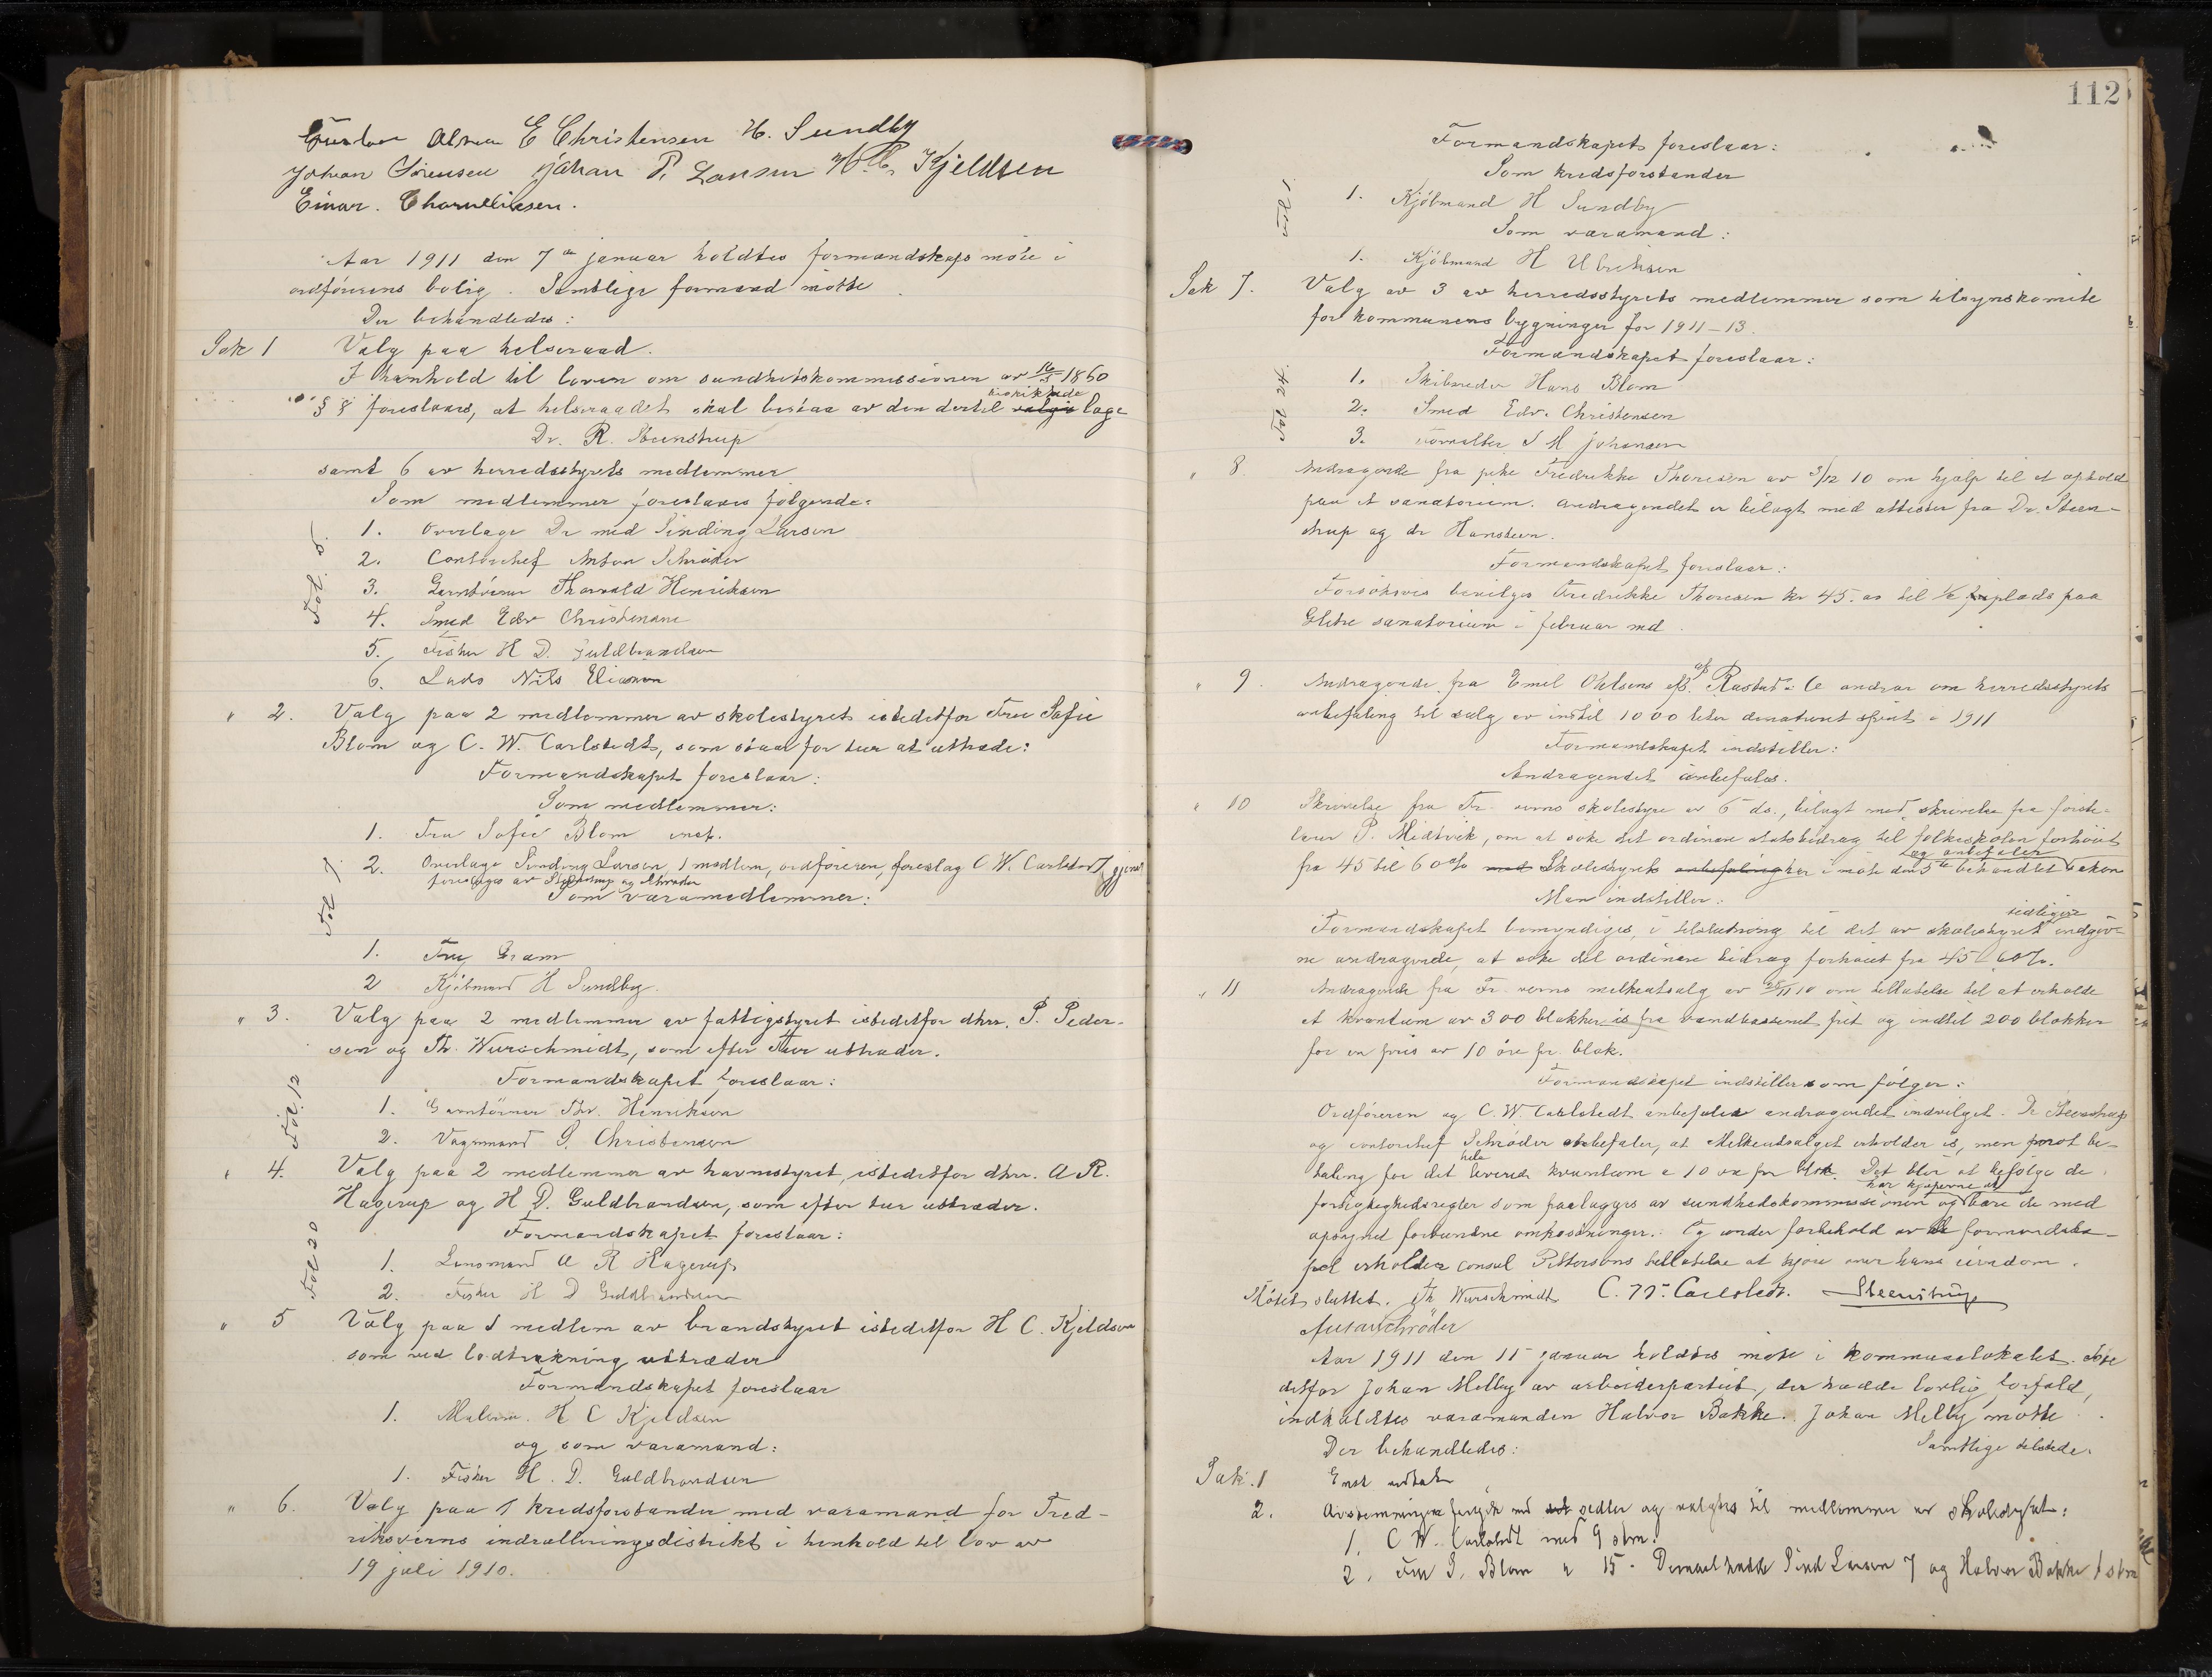 E Christensen H. Sundby
Johan Sörensen Johan P. Lansen H. C. Kjeldsen
Einar.
Aar 1911 den 7de januar holdtes formandskapsmöte i
ordförerens bolig. Samtlige formænd mötte
Der behandledes:
Sak 1 Valg paa helseraad.
I henhold til loven om sundhetskommissionen av 16/5 1860
§ foreslaaes, at helseraadet skal bestaa av den dertil valgte læge
Dr. R. Steenstrup
samt 6 av herredsstyrets medlemmer
Som medlemmer foreslaaes fölgende:
Fol. 5.
1. Overlæge Dr med Sinding Larsen
2. Contorchef Anton Schröder
3. Garntörner Thorvald Henriksen
4. Smed Edv Christensen
5. Fisker H D. Guldbrandsen
6. Lods Nils Eliasen
" 2. Valg paa 2 medlemmer av skolestyret istedetfor Fru Sofie
Blom og C. W. Carlstedt, som staar for tur at uttræde:
Formandskapet foreslaar:
Som medlemmer:
Fol 7.
1. Fru Sofie Blom enst.
2. Overlæge Sinding Larsen, 1 medlem, ordföreren, foreslog C W. Carlstedt
foreslaaes av Steenstrup og Schröder
Som varamedlemmer:
1. Fru Gram
2 Kjöbmand H Sundby.
" 3. Valg paa 2 medlemmer av fattigstyret istedetfor dhrr. P. Peder-
sen og Th. Wurschmidt, som efter tur uttræder.
Formandskapet foreslaar:
Fol. 12
1. Garntörner Thv. Henriksen
2. Vognmand S. Christensen
" 4. Valg paa 2 medlemmer av havnestyret, istedetfor dhrr. A R.
Hagerup og H D. Guldbrandsen, som efter tur uttræder.
Formandskapet foreslaar:
Fol 20
1. Lensmand A R Hagerup
2. Fisker H D Guldbrandsen
" 5 Valg paa 1 medlem av brandstyret istedetfor H C. Kjeldsen
som ved lodtrækning uttræder
Formandskapet foreslaar
1. Malerm. H C Kjeldsen
og som varamand:
1. Fisker H. D. Guldbrandsen
" 6. Valg paa 1 kredsforstander med varamand for Fred-
riksværns indrulleringsdistrikt i henhold til lov av
19 juli 1910.
112
Formandskapet foreslaar:
Som kredsforstander
1. Kjöbmand H Sundby
Som varamand:
1. Kjöbmand H Ulriksen
Sak 7. Valg av 3 av herredsstyrets medlemmer som tilsynskomite
for kommunens bygninger for 1911–13.
Formandskapet foreslaar:
1. Skibsreder Hans Blom
2. Smed Edv. Christensen
3. Forvalter S M Johansen
" 8. Andragende fra pike Fredrikke Thoresen av 3/12 10 om hjælp til et ophold
paa et sanatorium. Andragendet er bilagt med attester fra Dr. Steen-
strup og dr Hansteen.
Formandskapet foreslaar:
Forsöksvis bevilges Fredrikke Thoresen kr 45.00 til 1/2 friplads paa
Glitre sanatorium i februar md.
" 9. Andragende fra Emil Ohlsens eff. Rastad & Co andrar om herredsstyrets
anbefaling til salg av indtil 1000 liter denaturert sprit i 1911
Formandskapet indstiller:
Andragendet anbefales.
" 10 Skrivelse fra Fr. værns skolestyre av 6 ds., bilagt med skrivelse fra förste-
lærer P. Midtvik, om at söke det ordinære statsbidrag til folkeskolen forhöiet
og anbefaler
fra 45 til 60% med Skolestyrets anbefaling har i möte den 5te behandlet saken
Man indstiller:
tidligere
Formandskapet bemyndiges, i tilslutning til det av skolestyret indgiv-
ne andragende, at söke det ordinære bidrag forhöiet fra 45 – 60%.
" 11 Andragende fra Fr. værns melkeutsalg av 28/11 10 om tillatelse til at erholde
et kvantum av 300 blokker is fra vandbassenet frit og indtil 200 blokker
for en pris av 10 öre pr. blok.
Formandskapet indstiller som fölger:
Ordföreren og C. W. Carlstedt anbefaler andragendet indvilget. Dr Steenstrup
og contorchef Schröder anbefaler, at Melkeutsalget erholder is, men mot be-
hele
taling for det leverede kvantum a 10 öre pr blok. Det blir at befölge de
har kjöperne at
forsigtighedsregler som paalægges av sundhedskommissionen og bære de med
opsynet forbundne omkostninger. Og under forbehold av at formandska-
pet erholder consul Pettersons tillatelse at kjöre over hans eiendom.
Mötet sluttet. Th Wurschmidt C. W. Carlstedt. Steenstrup
Anton Schröder
Aar 1911 den 11 januar holdtes möte i kommunelokalet. Iste
detfor Johan Melby av arbeiderpartiet, der hadde lovlig forfald,
indkaldtes varamanden Halvor Bakke. Johan Melby mötte.
Der behandledes: Samtlige tilstede.
Sak. 1 Enst vedtat
2. Avstemningen foregik med sedler og valgtes til medlemmer av skolestyret:
1. C W. Carlstedt med 9 stm.
2. Fru S. Blom " 15 Dernæst hadde Sind Larsen 7 og Halvor Bakke 1 stm